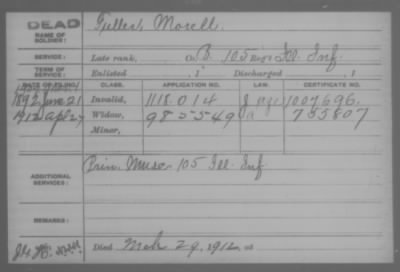 DEAD
NAME OF SOLDIER: Fuller, Morell.
SERVICE: Late rank, Co. B, 105 Reg't Ill. Inf.
TERM OF SERVICE: Enlisted , 1 Discharged , 1
DATE OF FILING. CLASS. APPLICATION NO. LAW. CERTIFICATE NO.
1892 June 21 Invalid, 1118.014 1007696.
1912 Apl 27 Widow, 985549 753807
Minor,
ADDITIONAL SERVICES: Prin. Musc 105 Ill. Inf
REMARKS:
Died Mch 29, 1912, at